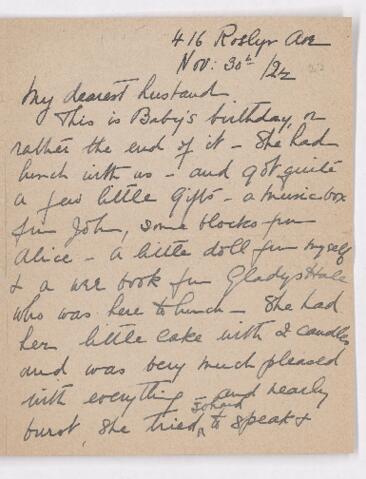 416 Roslyn Ave
Nov: 30th /22
My dearest husband
This is Baby's birthday, or
rather the end of it - She had
lunch with us - and got quite
a few little gifts - a music box
fm John, some blocks fm
Alice - a little doll fm myself
& a wee book fm Gladys Hale
who was here to lunch - She had
her little cake with 2 candles
and was very much pleased
with everything and nearly
burst, she tried so hard to speak &